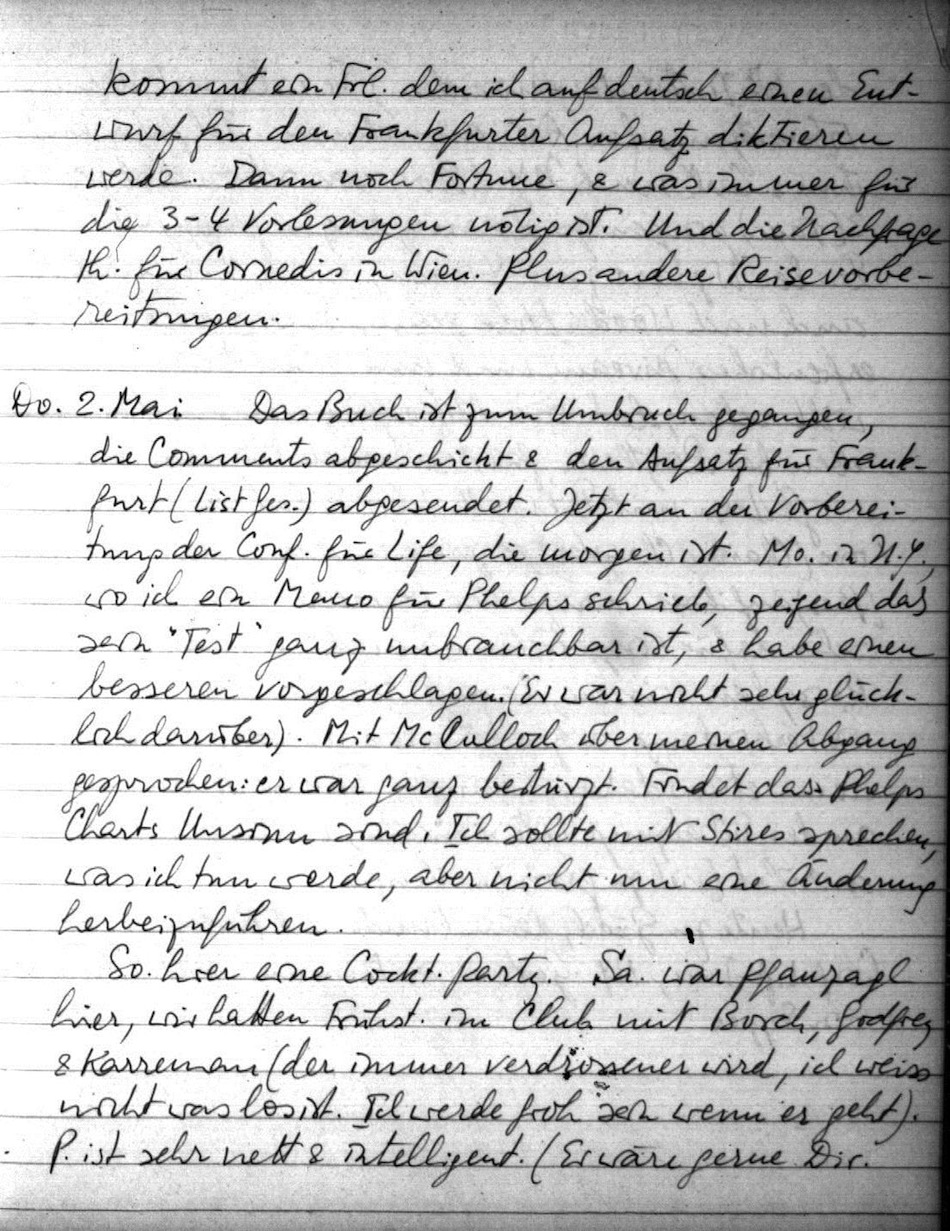 kommt ein Frl. dem ich auf deutsch einen Ent-
wurf für den Frankfurter Aufsatz diktieren
werde. Dann noch Fortune, & was immer für
die 3-4 Vorlesungen nötig ist. Und die Nachfrage
th. für Cornedis in Wien. Plus andere Reisevorbe-
reitungen.
Do. 2. Mai Das Buch ist zum Umbruch gegangen,
die Comments abgeschickt & den Aufsatz für Frank-
furt (List Ges.) abgesendet. Jetzt an der Vorberei-
tung der Conf. für Life, die morgen ist. Mo. in N.Y.,
wo ich ein Memo für Phelps schrieb, zeigend das
sein "Test" ganz unbrauchbar ist, & habe einen
besseren vorgeschlagen. (Er war nicht sehr glück-
lich darüber). Mit McCulloch über meinen Abgang
gesprochen: er war ganz bestürzt. Findet dass Phelps
Charts Unsinn sind. Ich sollte mit Stires sprechen,
was ich tun werde, aber nicht um eine Änderung
herbeizuführen.
So. hier eine Cockt. Party. Sa. war Pfanzagl
hier, wir hatten Frühst. im Club mit Borch, Godfrey
& Karreman (der immer verdrossener wird, ich weiss
nicht was los ist. Ich werde froh sein wenn er geht).
P. ist sehr nett & intelligent. (Er wäre gerne Dir.